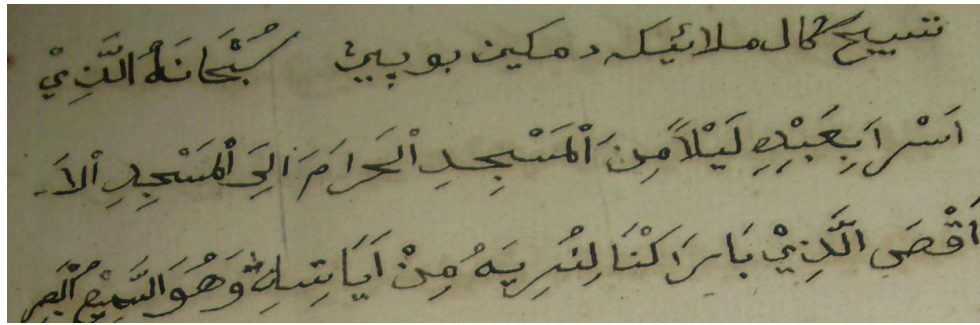 تسبيح كال ملائيكة دمكين بوپيڽ سُبْحَانَهُ الَّذِيْ
اَسْرَا بِعَبْدِهِ لَيْلًا مِنَ الْمَسْجِدِ الْحَرَامَ اِلَى الْمَسْجِدِ الْاَ
اَقْصَى الَّذِيْ بَارَاكْنَا لِنُرِيَهُ مِنْ اَيَاتِنَا اِنَّهُ وَهُوَ السَّمِيْعُ الْبَصِر